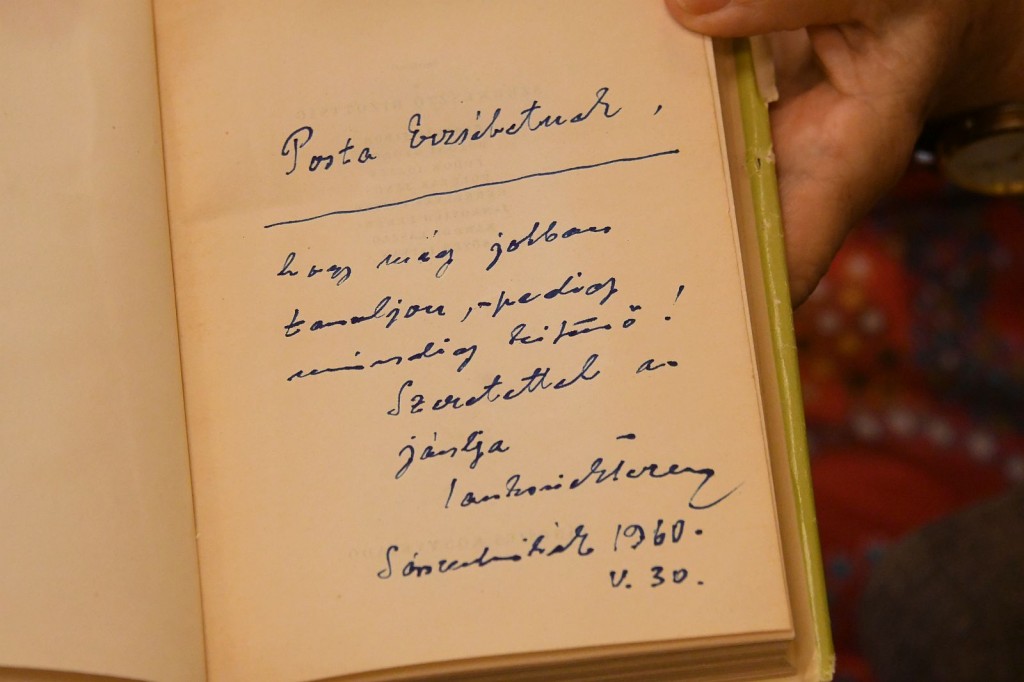 Posta Erzsébetnek,
hogy még jobban
tanuljon, - pedig
mindig kitűnő!
Szeretettel a-
jánlja
Jankovich Ferenc
1960.
V. 30.